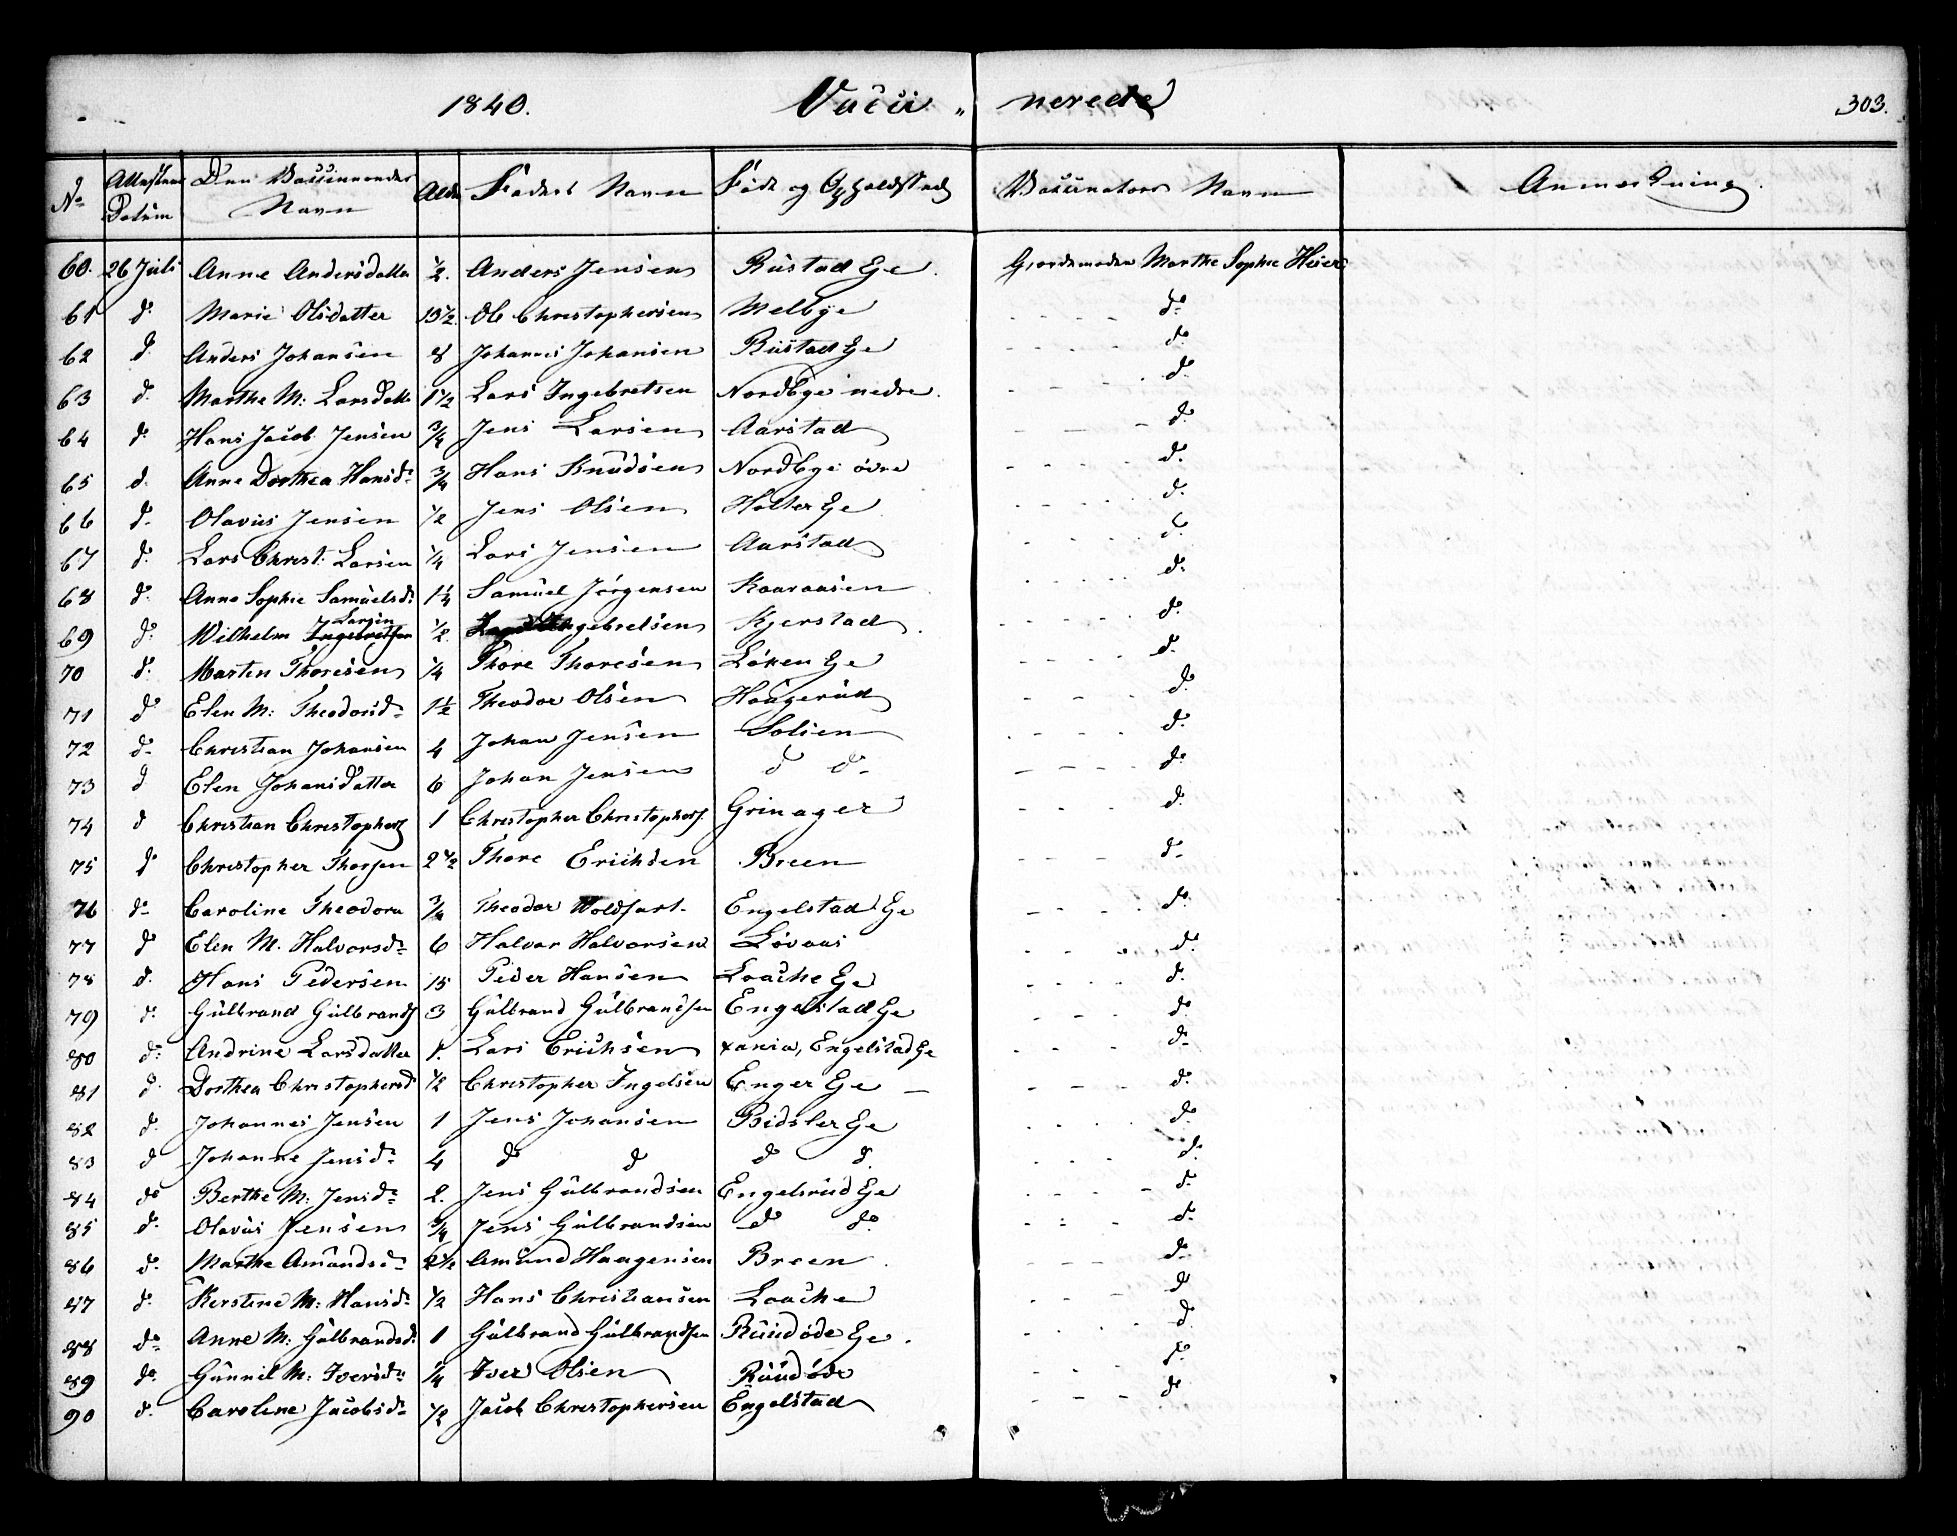 1840. Vacci„nerede 303.
No Attestens Datum Den Vaccinerendes Navn Alder Faders Navn Føde og Opholdsted Vaccinators Navn Anmærkning.
60. 26 Juli Anne Andersdatter ½. Anders Jensen Rustad Eje. Gjordemoder Marthe Sophie Heier
61 do Marie Olsdatter 13½. Ole Christophersen Melbye - - - - do
62 d. Anders Johansen 8 Johannes Johansen Rustad Eje - - - - do
63 d. Marthe M: Larsdatter 1½ Lars Ingebretsen Nordbye nedre. - - - - do
64 d. Hans Jacob Jensen ¾ Jens Larsen Aarstad - - - do
65 d. Anne Dorthea Hansd: ¾ Hans Knudsen Nordbye övre - - - - do
66 d. Olavus Jensen ½ Jens Olsen Holter Eje - - - - d.
67 d. Lars Christ: Larsen ¼ Lars Jensen Aarstad - - - - do
68 d. Anne Sophie Samuelsd: 1¼ Samuel Jörgensen Kaaraasen - - - - do
69 do. Wilhelm Ingebretsen Larsen ½ Ingebretsen Kjerstad. - - - - do
70 d. Martin Thoresen ¼ Thore Thoresen Löken Eje - - - - do
71 do Elen M: Theodorsd: 1½ Theodor Olsen Haugerud - - - do
72 do Christian Johansen 4 Johan Jensen Solien - - - - do
73 d Elen Johansdatter 6 Johan Jensen d do - - - - do
74 d Christian Christophers 1 Christopher Christophers. Grinager - - - - do
75 do Christopher Thorsen 2½ Thore Erichsen Breen - - - - do
76 do Caroline Theodora ¾ Theodor Woldfart. Engelstad Eje - - - - do
77 do Elen M. Halvorsd: 6 Halvor Halvorsen Lövaas - - - - do
78 d. Hans Pedersen 15 Peder Hansen Laache Eje - - - - d.
79 d. Gulbrand Gulbrands 3 Gulbrand Gulbrandsen Engelstad Eje - - - do
80 d: Andrine Larsdatter 1. Lars Erichsen xania, Engelstad Eje - - - do
81 d. Dorthea Christophersd ½ Christopher Ingelsen Enger Eje - - - - do
82 d. Johannes Jensen 1 Jens Johansen Bidsler Eje - - - - do
83 d Johanne Jensd: 4 do d do d. - - - do
84 do Berthe M: Jensd: 2. Jens Gulbrandsen Engelsrud Eje - - - - do
85 d. Olavus Jensen ¾ Jens Gulbrandsen do do - - - do
86 d. Marthe Amundsd: 2½ Amund Haagensen Breen. - - - - do
87 d. Kerstine M: Hansd: ½ Hans Christiansen Laache - - - - do
88 do Anne M: Gulbrandsd. 1 Gulbrand Gulbrandsen Ruudöde Eje. - - - - d.
89 do Gunnil M: Iversd: ¼ Iver Olsen Ruudöde - - - do
90 d. Caroline Jacobsd: ½ Jacob Christophersen Engelstad - - - - do